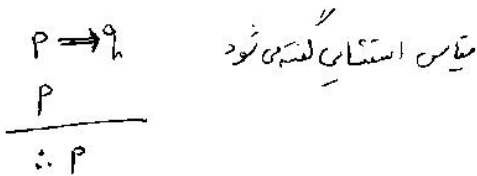 p ⇒ q قیاس استثنایی گفته می شود
p
∴ p